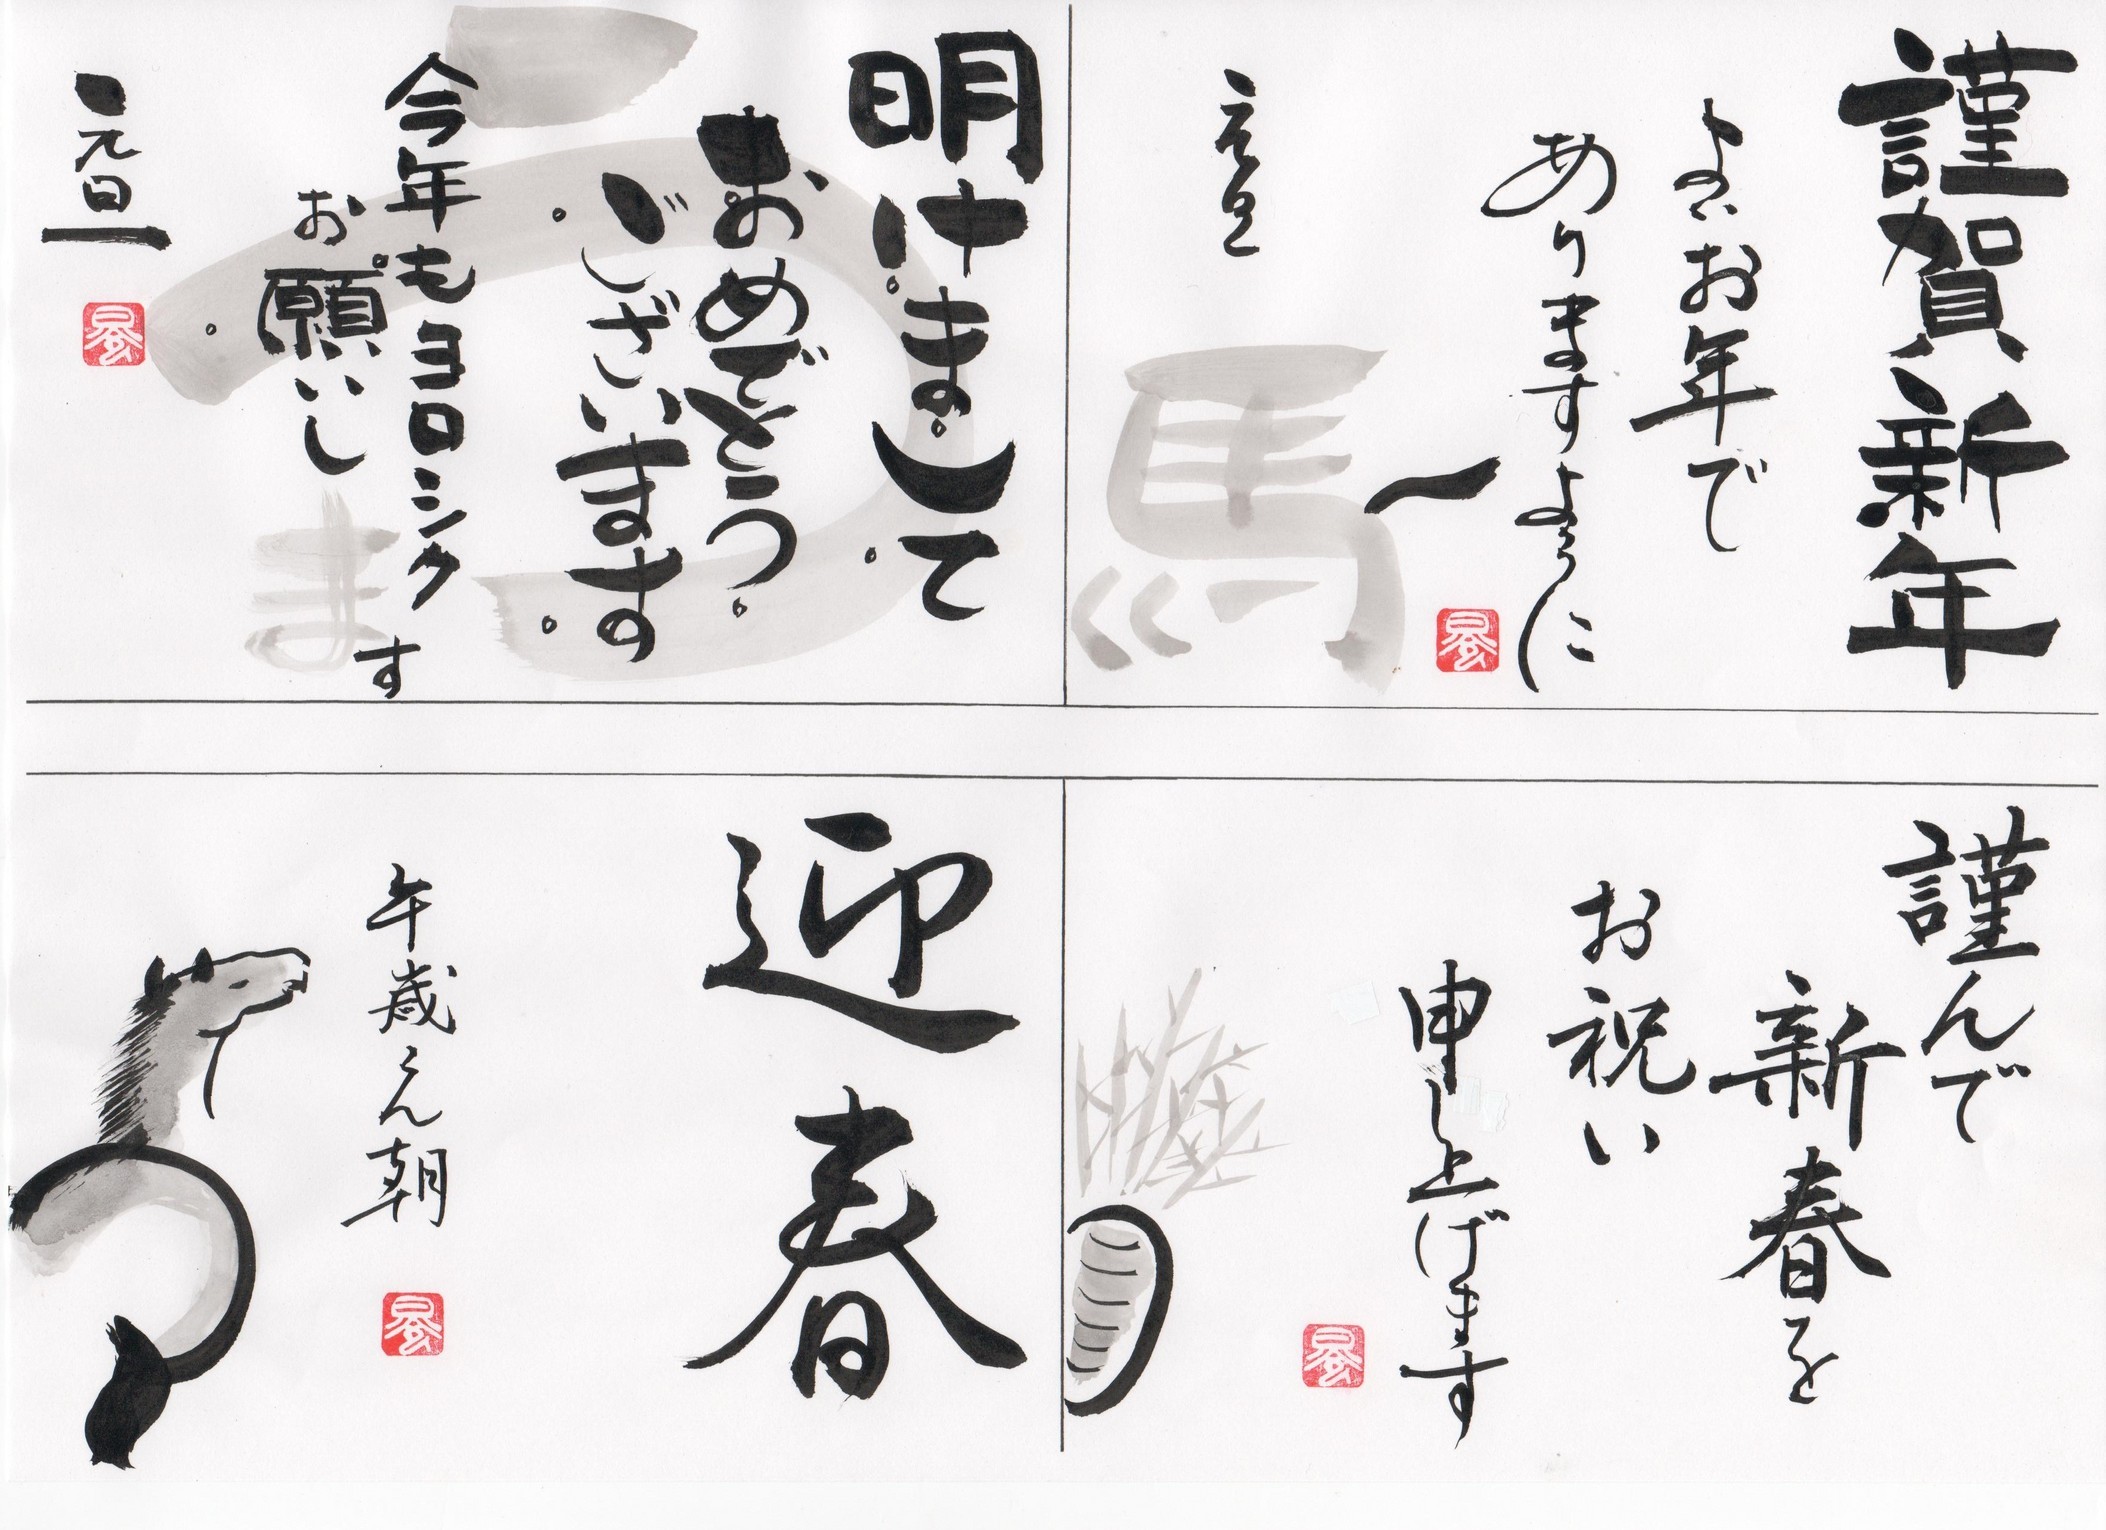 謹賀新年
よいお年で
ありますように
元旦
馬
明けまして
おめでとう
ございます
う
今年もヨロシク
お願いします
元旦
謹んで
新春を
お祝い
申し上げます
迎春
午歳元朝